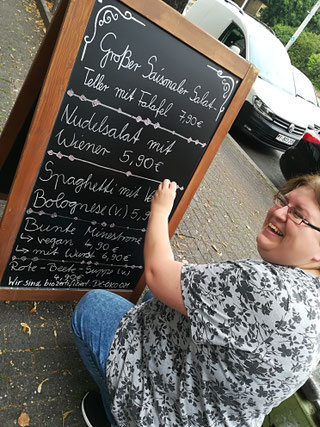 Großer Saisonaler Salat-
Teller mit Falafel 7,90€
Nudelsalat mit
Wiener 5,90€
Spaghetti mit
Bolognese (v.) 5,9
Bunte Minestrone
→ vegan 4,90€
→ mit Wurst 6,90€
Rote-Beete-Suppe (v.)
4,90€
Wir sind biozertifiziert. DE-ÖKO-007